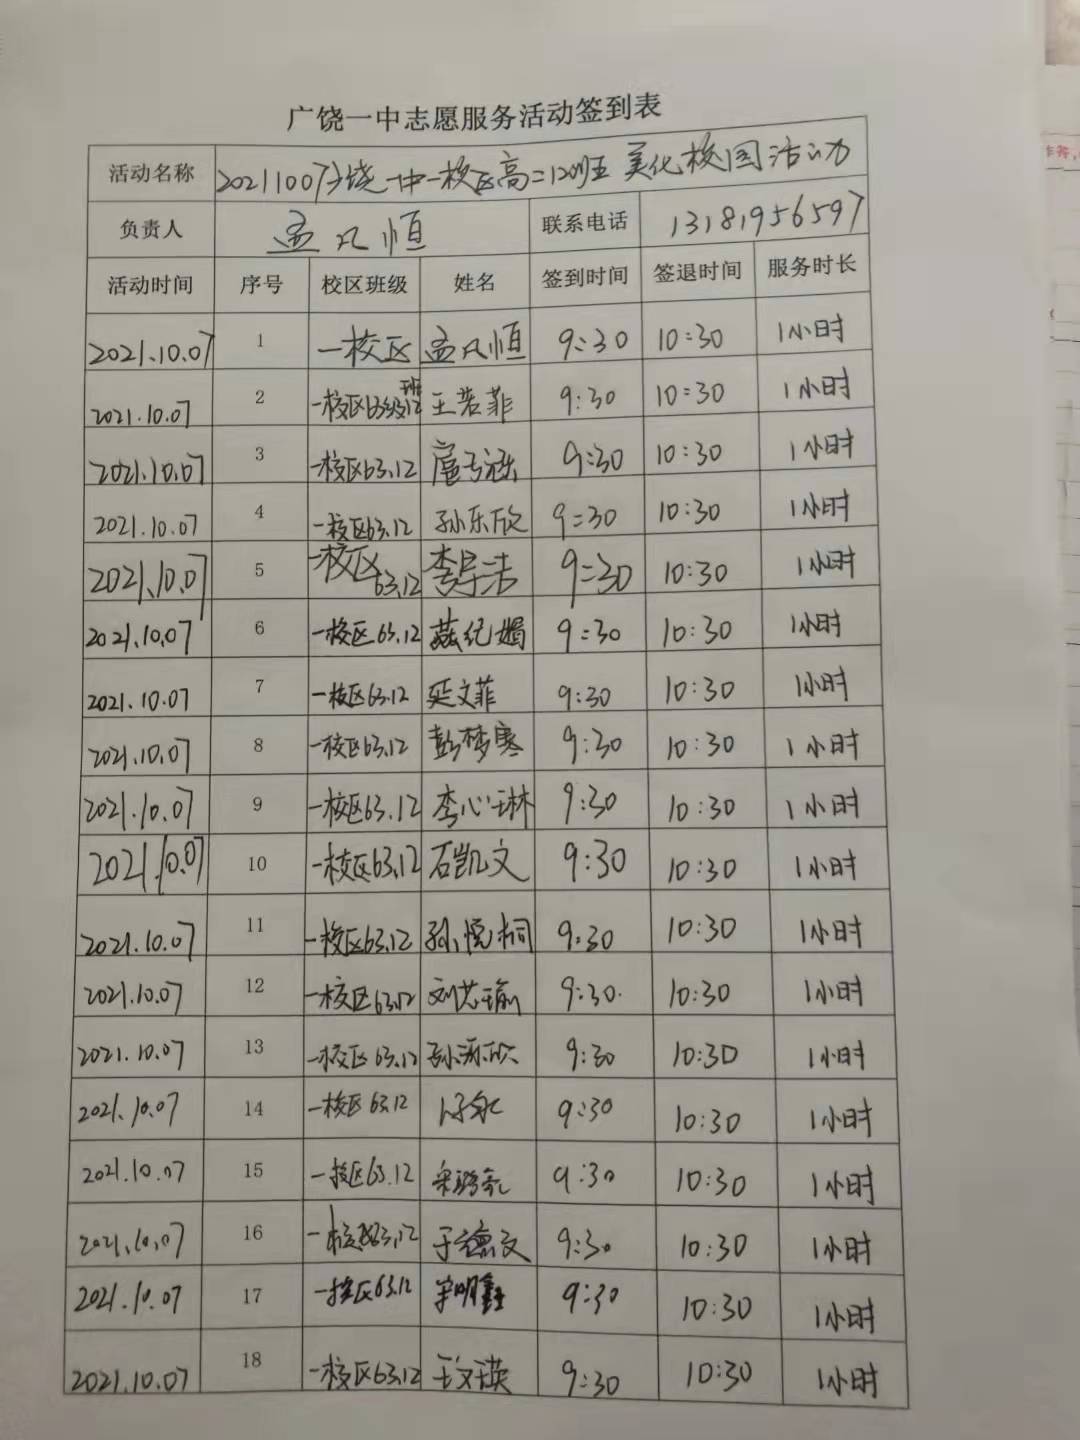 广饶一中志愿服务活动签到表
活动名称 20211007广饶一中一校区高二12班 美化校园活动
负责人 孟凡恒 联系电话 13181956597
活动时间 序号 校区班级 姓名 签到时间 签退时间 服务时长
2021.10.07 1 一校区 孟凡恒 9:30 10:30 1小时
2021.10.07 2 一校区63级12班 王若菲 9:30 10:30 1小时
2021.10.07 3 一校区63.12 9:30 10:30 1小时
2021.10.07 4 一校区63.12 孙乐欣 9:30 10:30 1小时
2021.10.07 5 一校区63.12 9:30 10:30 1小时
2021.10.07 6 一校区63.12 9:30 10:30 1小时
2021.10.07 7 一校区63.12 延文菲 9:30 10:30 1小时
2021.10.07 8 一校区63.12 彭梦寒 9:30 10:30 1小时
2021.10.07 9 一校区63.12 李心琳 9:30 10:30 1小时
2021.10.07 10 一校区63.12 石凯文 9:30 10:30 1小时
2021.10.07 11 一校区63.12 孙悦桐 9:30 10:30 1小时
2021.10.07 12 一校区63.12 刘芯瑜 9:30 10:30 1小时
2021.10.07 13 一校区63.12 9:30 10:30 1小时
2021.10.07 14 一校区63.12 9:30 10:30 1小时
2021.10.07 15 一校区63.12 9:30 10:30 1小时
2021.10.07 16 一校区63.12 于德文 9:30 10:30 1小时
2021.10.07 17 一校区63.12 9:30 10:30 1小时
2021.10.07 18 一校区63.12 王文瑛 9:30 10:30 1小时